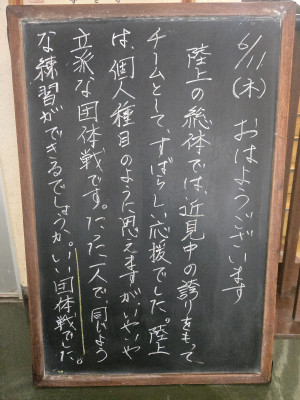 6/11(木) おはようございます
陸上の総体では、近見中の誇りをもって
チームとして、すばらしい応援でした。陸上
は、個人種目のように思えますが、いやいや
立派な団体戦です。たった一人で、同じよう
な練習ができるでしょうか。いい団体戦でした。